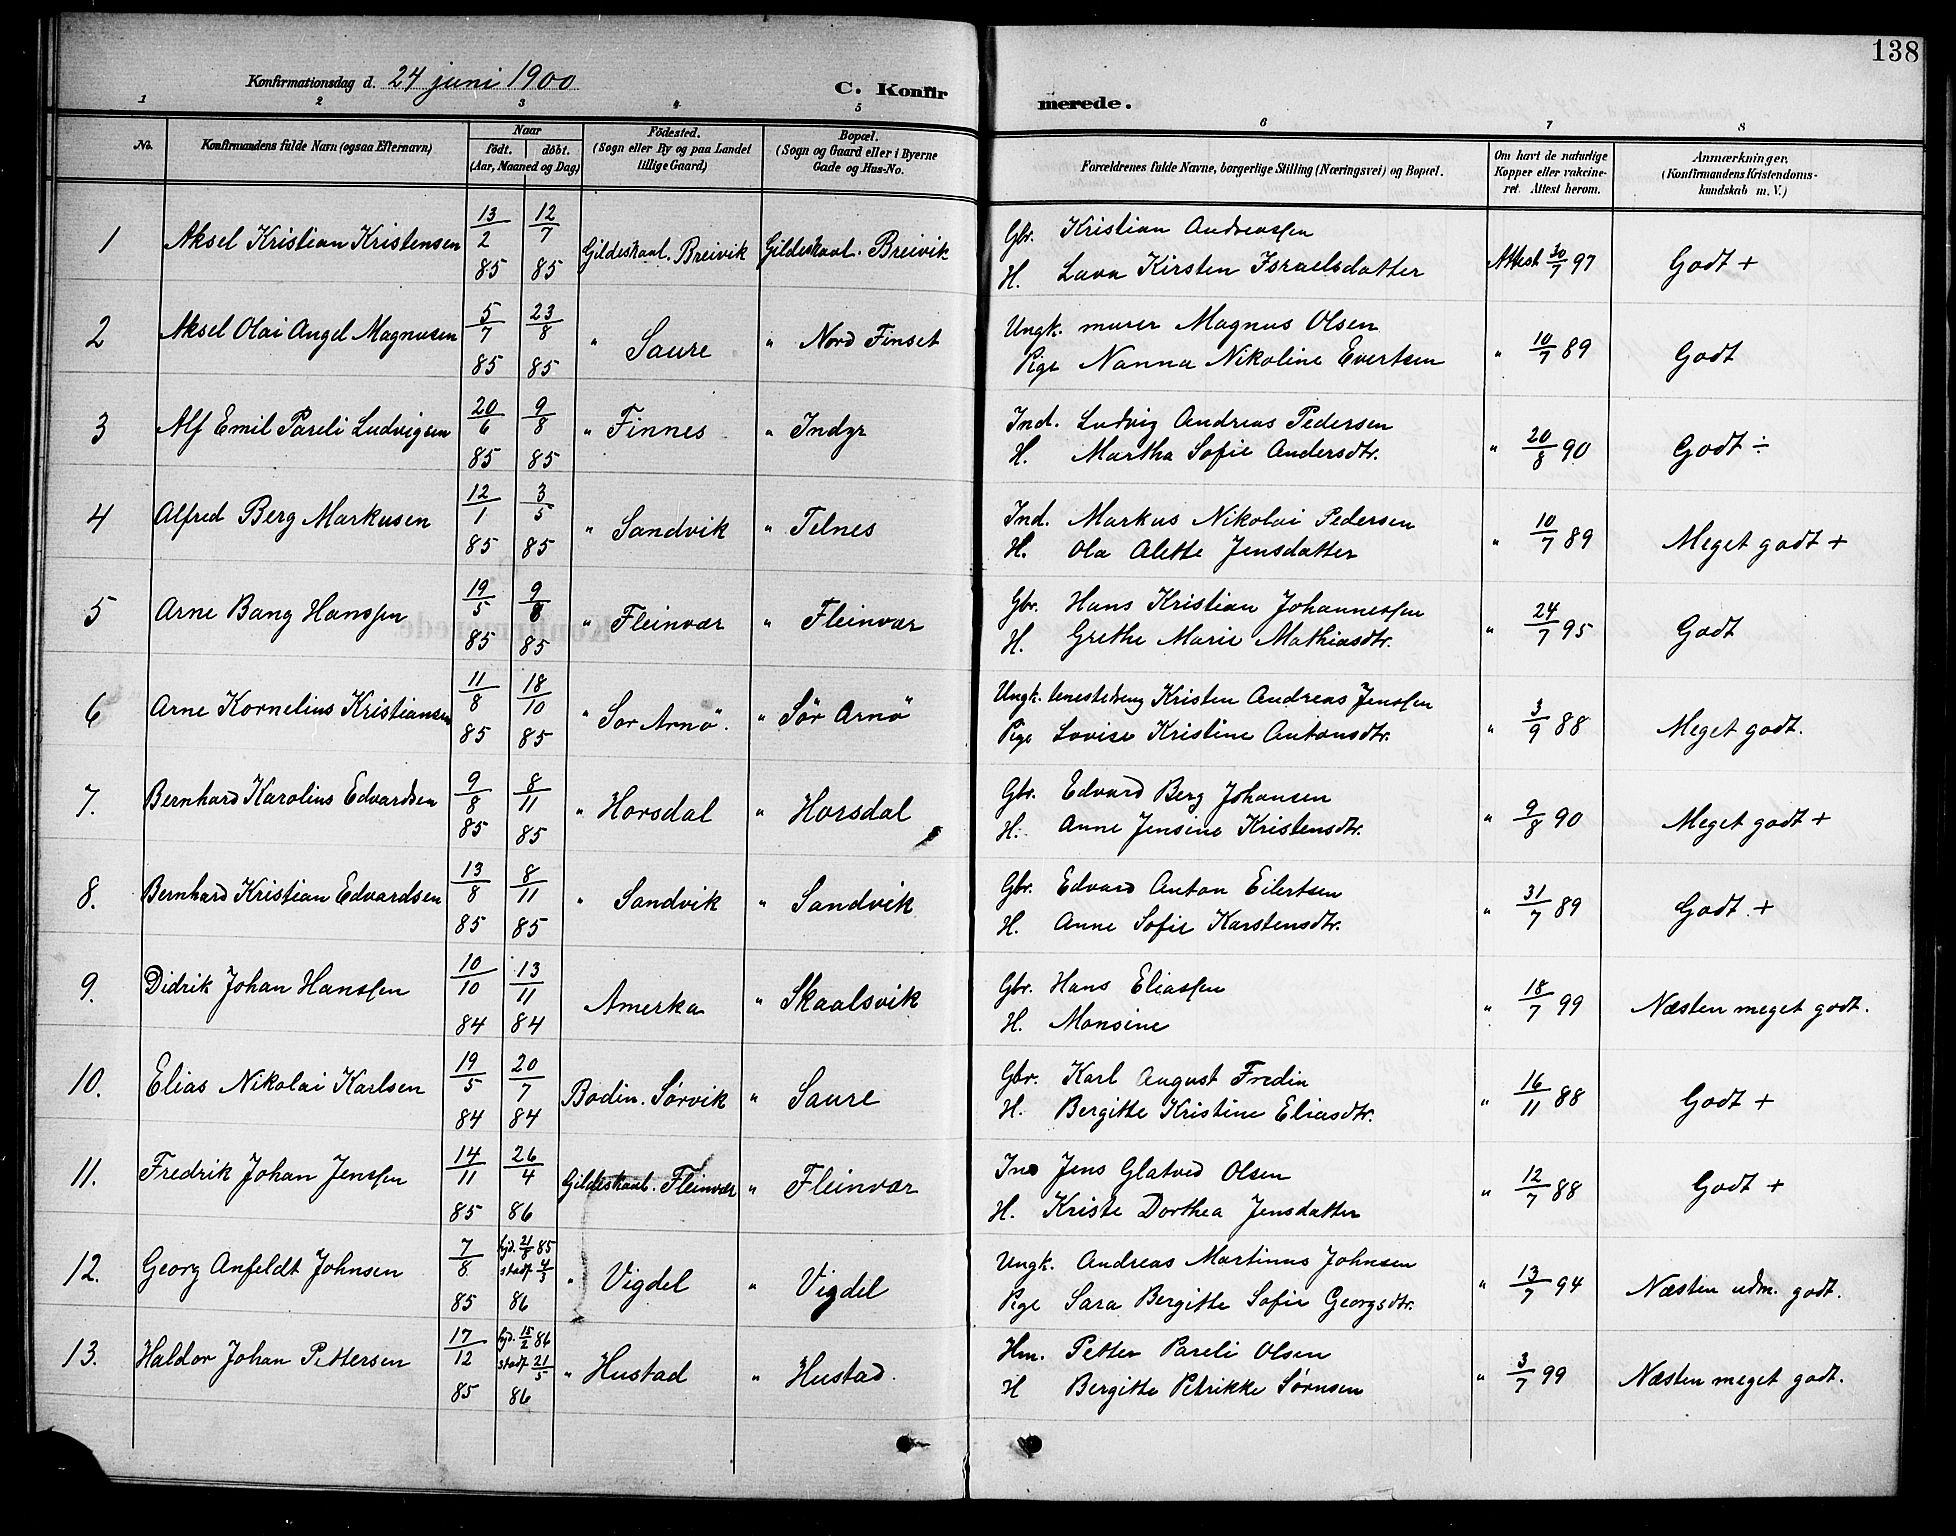 138
Konfirmationsdag d. 24 juni 1900 C. Konfirmerede.
1 2 3 4 5 6 7 8
No. Konfirmandens fulde Narn (ogsaa Efternavn) Naar födt. döbt. (Aar, Maaned og Dag) Födested. (Sogn eller By og paa Landet tillige Gaard) Bopæl. (Sogn og Gaard eller i Byerne Gade og Hus-No. Forældrenes fulde Navne, borgerlige Stilling (Næringsvei) og Bopæl. Om havt de naturlige Kopper eller vakcineret. Attest herom. Anmærkninger. (Konfirmandens Kristendomskundskab m. V.)
1 Aksel Kristian Kristensen 13/2 85 12/7 85 Gildeskaal. Breivik Gildeskaal. Breivik Gbr. Kristian Andreassen
H. Lava Kirsten Israelsdatter Attest 30/7 97 Godt +
2 Aksel Olai Angel Magnusen 5/7 85 23/8 85 " Saure " Nord Finset Ungk. murer Magnus Olsen
Pige Nanna Nikoline Evertsen " 10/7 89 Godt
3 Alf Emil Pareli Ludvigsen 20/6 85 9/8 85 " Finnes " Indyr Ind. Ludvig Andreas Pedersen
H. Martha Sofie Andersdtr. " 20/8 90 Godt ÷
4 Alfred Berg Markusen 12/1 85 3/5 85 " Sandvik " Telnes Ind. Markus Nikolai Pedersen
H. Ola Alette Jensdatter " 10/7 89 Meget godt +
5 Arne Bang Hanssen 19/5 85 9/8 85 " Fleinvær " Fleinvær Gbr. Hans Kristian Johannessen
H. Grethe Marie Mathiasdtr. " 24/7 95 Godt
6 Arne Kornelius Kristiansen 11/8 85 18/10 85 " Sør Arnö. " Sør Arnö Ungk. tenestedreng Kristen Andreas Jenssen
Pige Lovise Kristine Antonsdtr. " 3/9 88 Meget godt.
7. Bernhard Karolius Edvardsen 9/8 85 8/11 85 " Horsdal " Horsdal Gbr. Edvard Berg Johansen
H. Anne Jensine Kristensdtr. " 9/8 90 Meget godt +
8. Bernhard Kristian Edvardsen 13/8 85 8/11 85 " Sandvik " Sandvik Gbr. Edvard Anton Eilertsen
H. Anne Sofie Karstensdtr. " 31/7 89 Godt. +
9. Didrik Johan Hanssen 10/10 84 13/11 84 Amerka " Skaalsvik Gbr. Hans Eliassen
H. Monsine " 18/7 99 Næsten meget godt.
10. Elias Nikolai Karlsen 19/5 84 20/7 84 Bodin. Sørvik " Saure Gbr. Karl August Fredin
H. Bergitte Kristine Eliasdtr. " 16/11 88 Godt +
11. Fredrik Johan Jenssen 14/11 85 26/4 86 Gildeskaal. Fleinvær " Fleinvær Ind Jens Glatved Olsen
H. Kriste Dorthea Jensdatter " 12/7 88 Godt +
12. Georg Anfeldt Johnsen 7/8 85 hjd. 21/8 85 stadf. 4/3 86 " Vigdel " Vigdel Ungk. Andreas Martinus Johnsen
Pige Sara Bergitte Sofie Georgsdtr. " 13/7 94 Næsten udm. godt.
13. Haldor Johan Pettersen 17/12 85 hjd. 15/2 86 stadf. 21/5 86 " Hustad " Hustad. Hm. Petter Pareli Olsen
H Bergitte Petrikke Sørnsen " 3/7 99 Næsten meget godt.